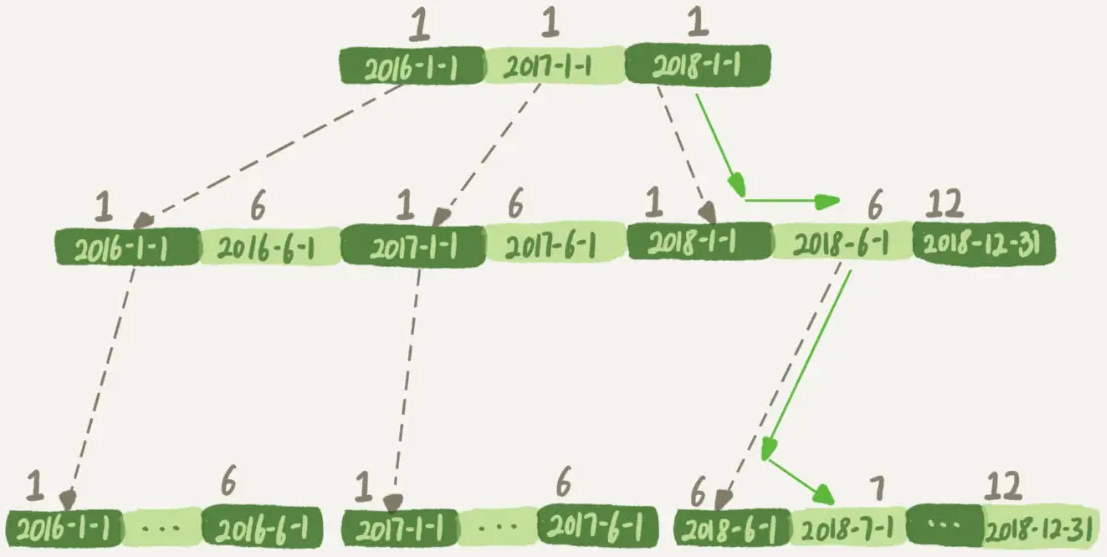 1 1 1
2016-1-1 2017-1-1 2018-1-1
1 6 1 6 1 6 12
2016-1-1 2016-6-1 2017-1-1 2017-6-1 2018-1-1 2018-6-1 2018-12-31
1 6 1 6 6 7 12
2016-1-1 ... 2016-6-1 2017-1-1 ... 2017-6-1 2018-6-1 2018-7-1 ... 2018-12-31